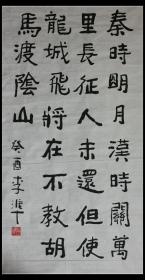 秦時明月漢時關萬
里長征人未還但使
龍城飛將在不教胡
馬渡陰山
癸酉李